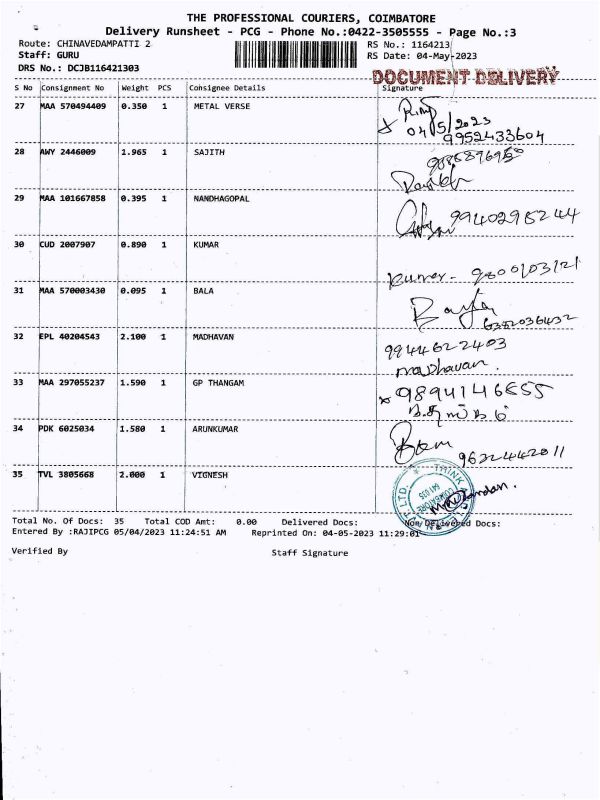 THE PROFESSIONAL COURIERS, COIMBATORE
Delivery Runsheet - PCG - Phone No.:0422-3505555 - Page No.:3
Route: CHINAVEDAMPATTI 2 RS No.: 1164213
Staff: GURU RS Date: 04-May-2023
DRS No.: DCJB116421303
DOCUMENT DELIVERY
S No Consignment No Weight PCS Consignee Details Signature
27 MAA 570494409 0.350 1 METAL VERSE
04/5/2023
9952433604
28 AWY 2446009 1.965 1 SAJITH
29 MAA 101667858 0.395 1 NANDHAGOPAL
30 CUD 2007907 0.890 1 KUMAR
Kumar-
31 MAA 570003430 0.095 1 BALA
6382036432
32 EPL 40204543 2.100 1 MADHAVAN
9944622403
madhavan.
33 MAA 297055237 1.590 1 GP THANGAM
34 PDK 6025034 1.580 1 ARUNKUMAR
35 TVL 3805668 2.000 1 VIGNESH
THINK
COIMBATORE
LTD.
Total No. Of Docs: 35 Total COD Amt: 0.00 Delivered Docs: Non Delivered Docs:
Entered By :RAJIPCG 05/04/2023 11:24:51 AM Reprinted On: 04-05-2023 11:29:01
Verified By Staff Signature